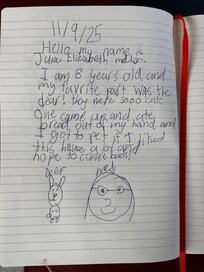 11/9/25
Hello my name is
June Elizabeth
I am 8 years old and
my favorite part was the
dear! they were sooo cute
One came up and ate
bread out of my hand and
I got to pet it I liked
this house a lot and
hope to come back!
deer
me